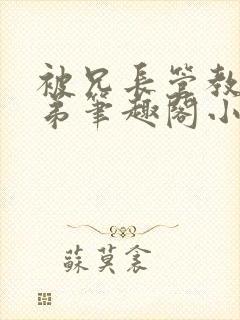 被兄長管教
弟筆趣閣小
蘇莫衾